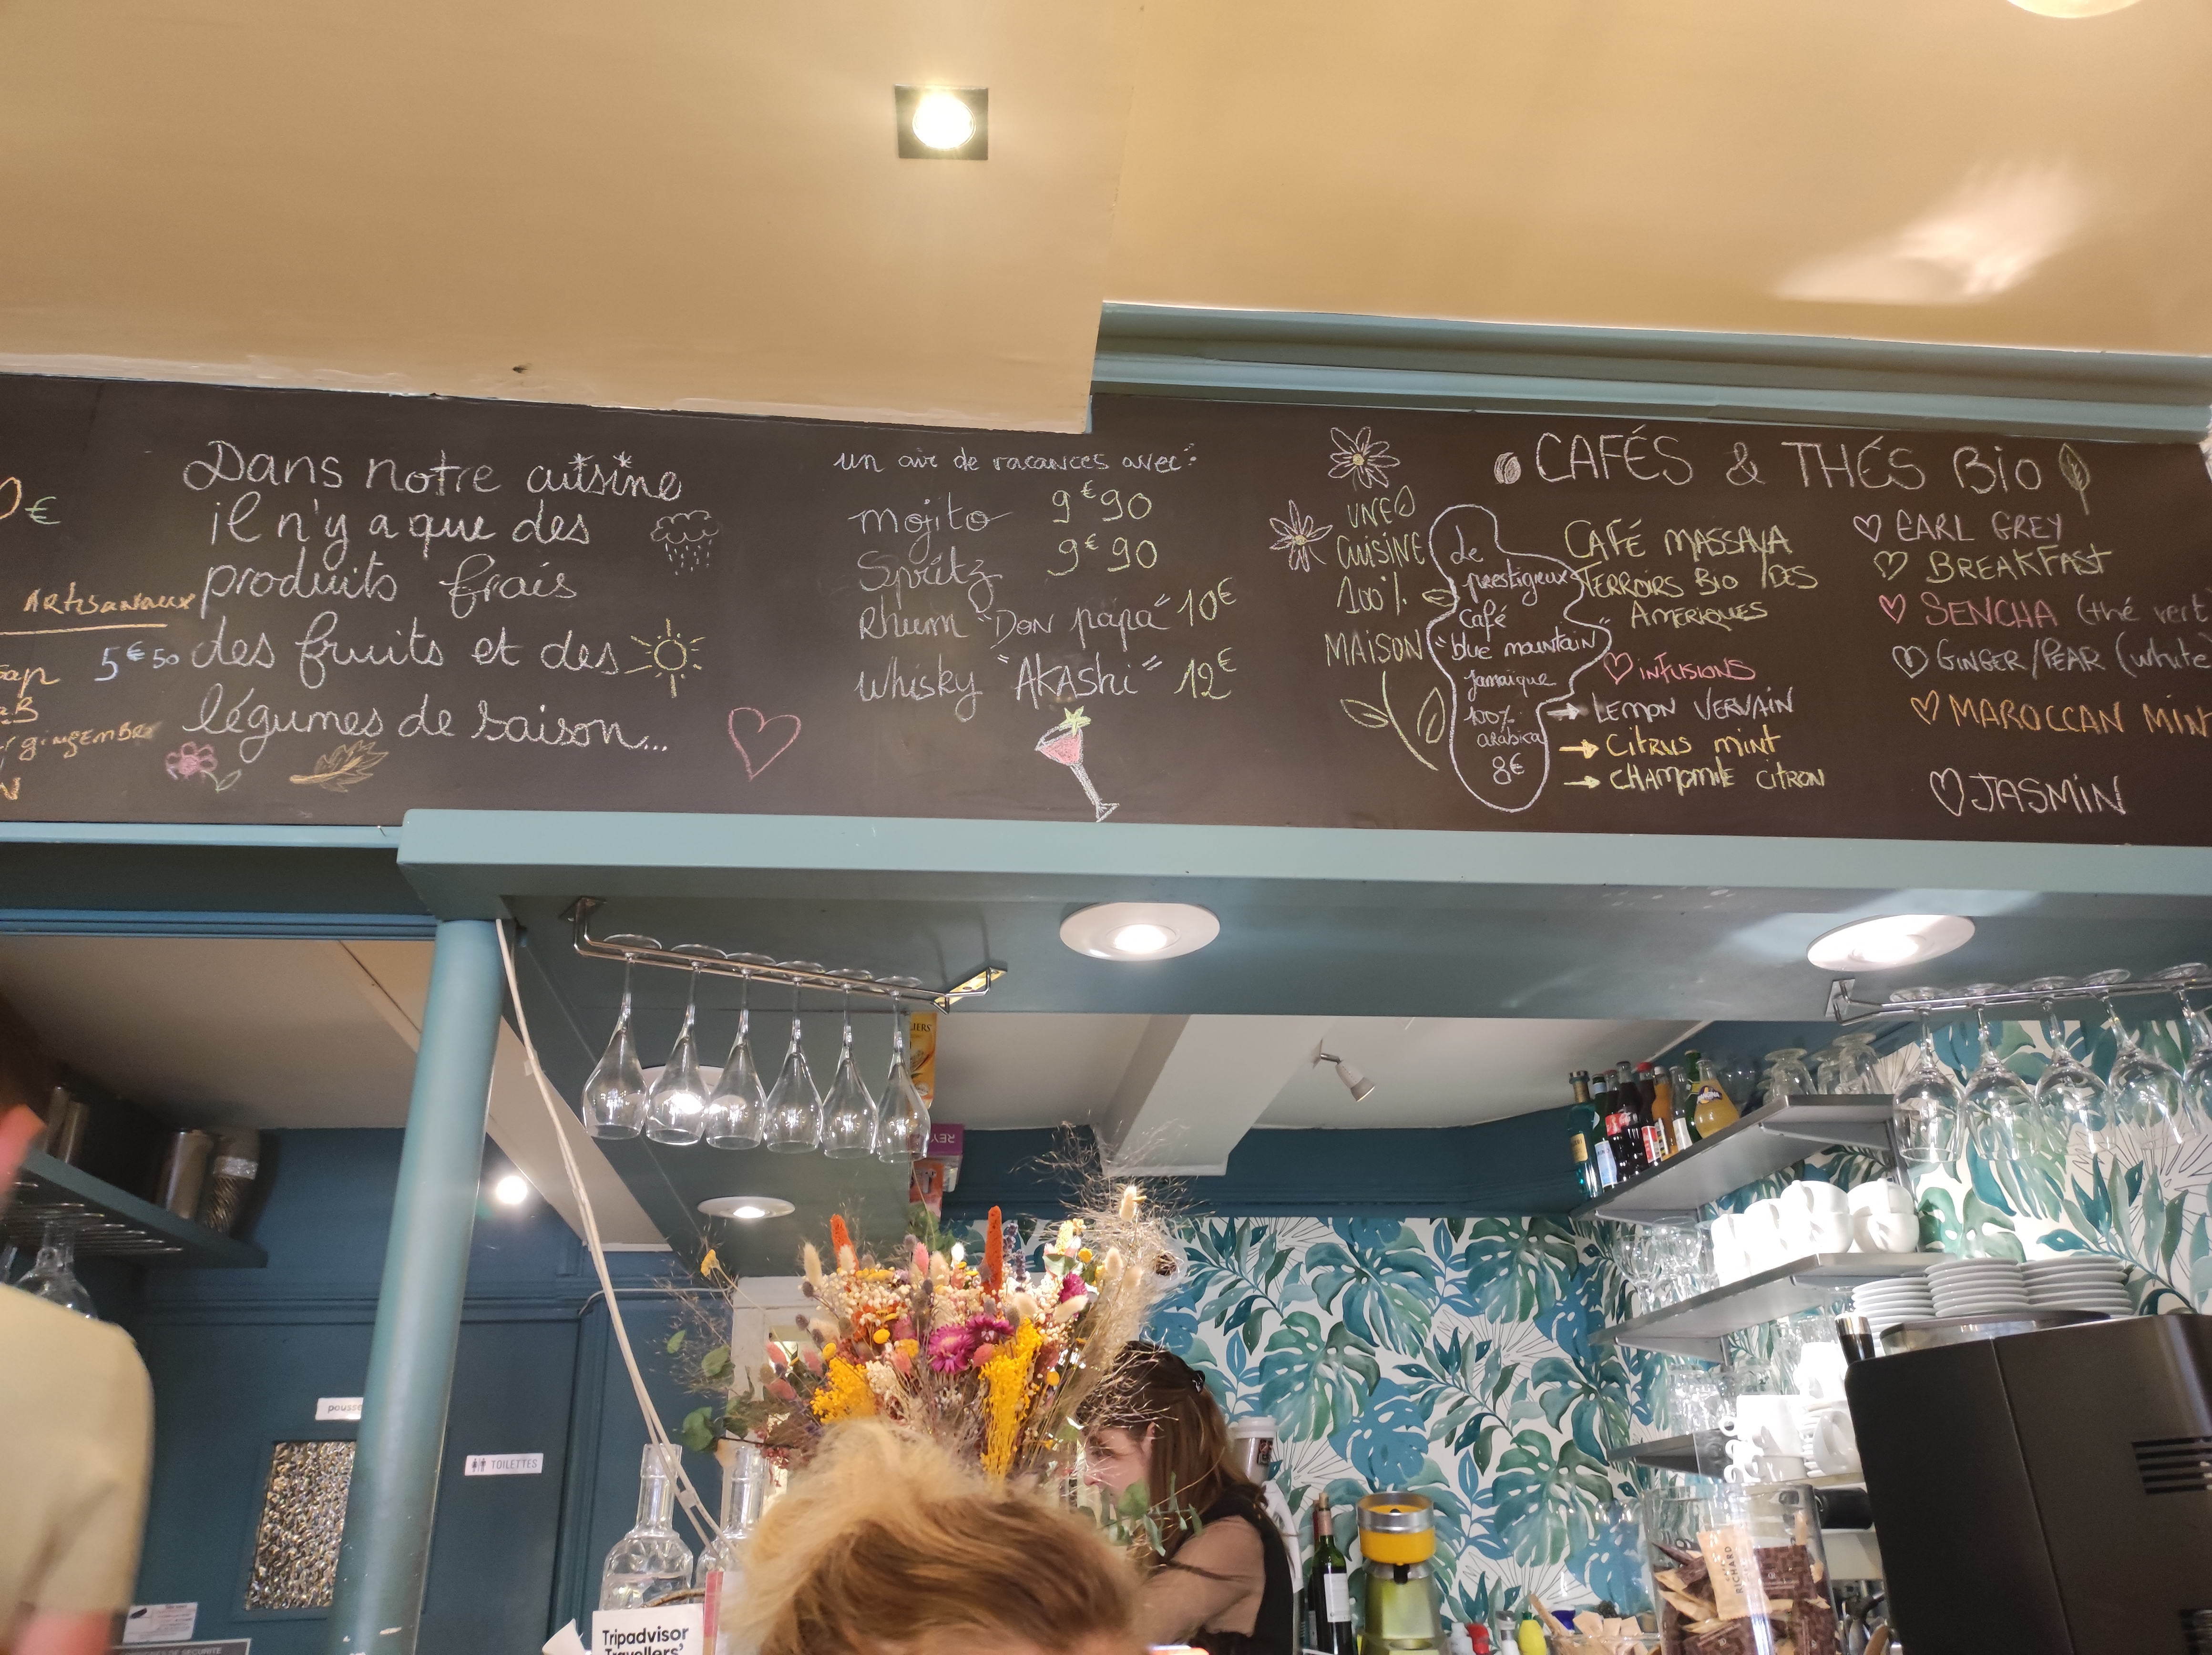 0€
Artisanaux
5€50
gingembre
Dans notre cuisine
il n'y a que des
produits frais
des fruits et des
légumes de saison...
un air de vacances avec:
mojito 9€90
Spritz 9€90
Rhum "Don papa" 10€
Whisky "AKAShi" 12€
UNE
CUISINE
100%
MAISON
CAFÉS & THÉS Bio
Le
prestigieux
Café
"blue mountain"
Jamaïque
100%
arabica
8€
CAFÉ MASSAYA
TERROIRS Bio DES
AMERIQUES
iNFUSIONS
LEMON VERVAIN
CiTRUS MiNT
CHAMOMILE CiTRON
EARL GREY
BREAKFAST
SENCHA (thé vert
GiNGER/PEAR (white
MAROCCAN MIN
JASMiN
TOILETTES
Tripadvisor
Travellers'
RICHARD